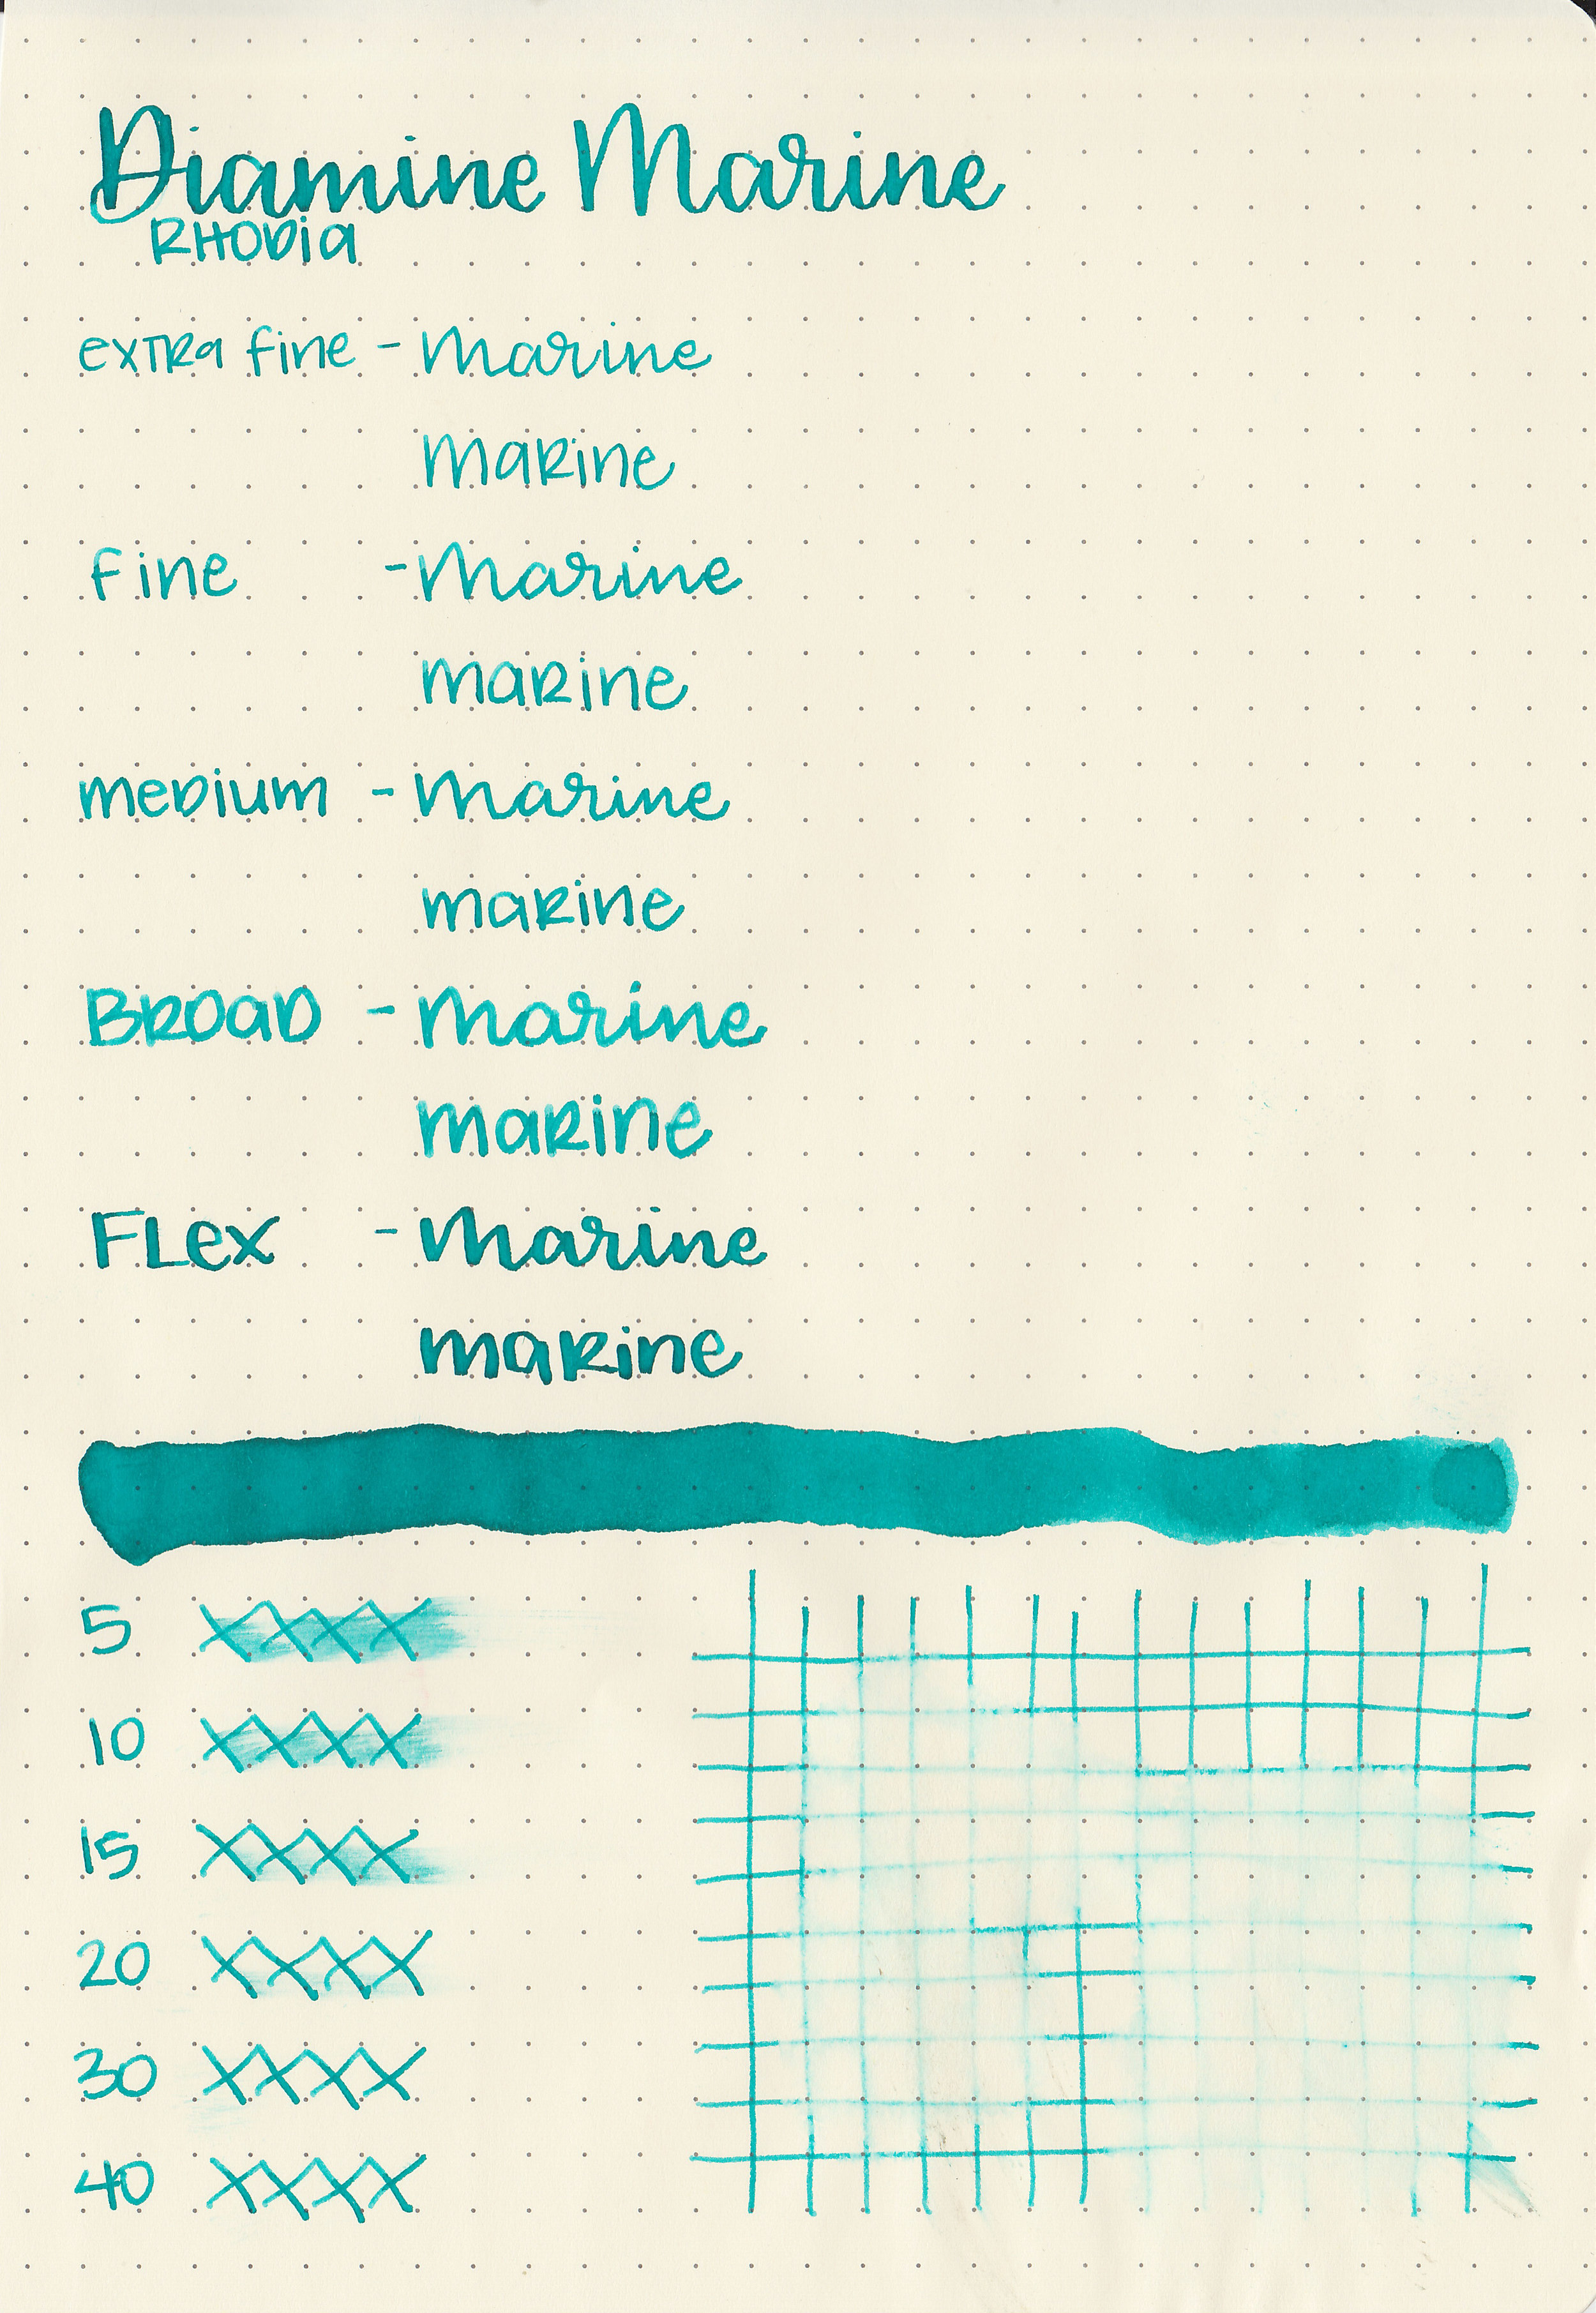 Diamine Marine
RHODia
exTRa fine - Marine
MaRine
fine - Marine
maRine
meDium - Marine
maRine
BROaD - Marine
maRine
FLex - Marine
maRine
5 XXXX
10 XXXX
15 XXXX
20 XXXX
30 XXXX
40 XXXX